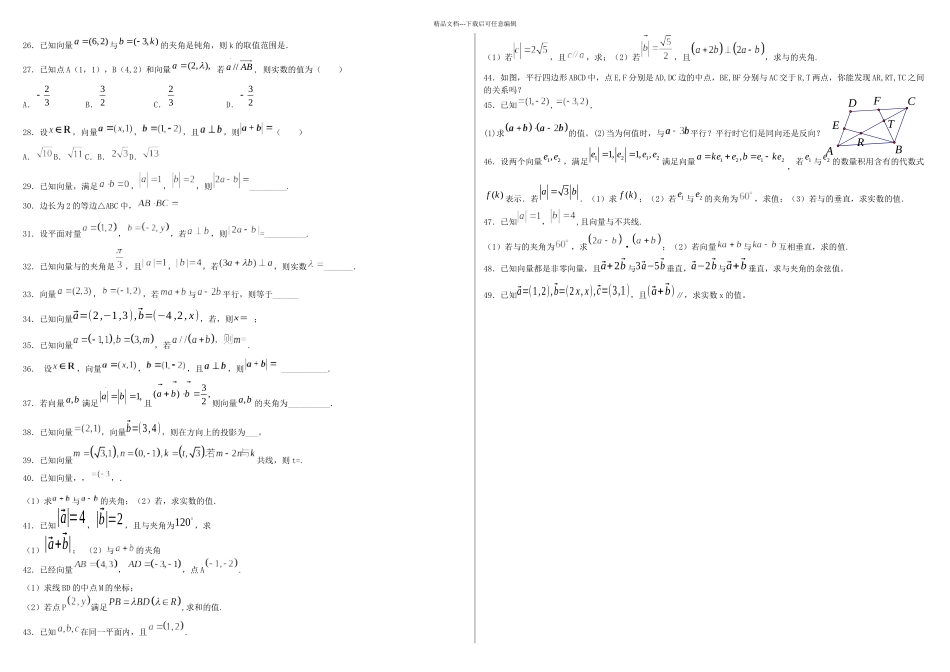 精品文档---下载后可任意编辑
26. 已知向量 a=(6,2) 与 b=(-3,k) 的夹角是钝角，则 k 的取值范围是.
27. 已知点 A（1，1），B（4,2）和向量 a=(2,λ), 若 a // AB, 则实数的值为（　　）
A. -2/3　B. 3/2　C. 2/3　D. -3/2
28. 设 x∈R，向量 a=(x,1), b=(1,-2)，且 a⊥b，则 |a+b|=（　　）
A. √10 B. √11 C. B. 2√5 D. √13
29. 已知向量，满足 a·b=0，|a|=1，|b|=2，则 |2a-b|=________.
30. 边长为 2 的等边△ABC 中，AB·BC=
31. 设平面对量 a=(1,2)，b=(-2,y)，若 a⊥b，则 |2a-b|=__________.
32. 已知向量与的夹角是 π/3，且 |a|=1，|b|=4，若 (3a+λb)⊥a，则实数 λ=_______.
33. 向量 a=(2,3)，b=(-1,2)，若 ma+b 与 a-2b 平行，则等于______
34. 已知向量 a=(2,-1,3),b=(-4,2,x)，若，则 x= ；
35. 已知向量 a=(-1,1),b=(3,m)，若 a//(a+b)，则 m=.
36. 设 x∈R，向量 a=(x,1)，b=(1,-2)，且 a⊥b，则 |a+b|=___________.
37. 若向量 a,b 满足 |a|=|b|=1, 且 (a+b)·b=3/2, 则向量 a,b 的夹角为__________.
38. 已知向量 =(2,1)，向量 b=(3,4)，则在方向上的投影为___。
39. 已知向量 m=(√3,1),n=(0,-1),k=(t,√3).若 m-2n 与 k 共线，则 t=.
40. 已知向量，，=(-1，.
（1）求 a+b 与 a-b 的夹角；（2）若，求实数的值.
41. 已知 |a|=4，|b|=2，且与夹角为 120°，求
（1）|a+b|；　（2）与 a+b 的夹角
42. 已经向量 AB=(4,3)，AD=(-3,-1)，点 A(-1,-2).
（1）求线 BD 的中点 M 的坐标；
（2）若点 P(2,y) 满足 PB=λBD(λ∈R), 求和的值.
43. 已知 a,b,c 在同一平面内，且 a=(1,2).
（1）若 |c|=2√5，且 c//a，求；（2）若 |b|=√5/2，且 (a+2b)⊥(2a-b)，求与的夹角.
44. 如图，平行四边形 ABCD 中，点 E,F 分别是 AD,DC 边的中点，BE,BF 分别与 AC 交于 R,T 两点，你能发现 AR,RT,TC 之间
的关系吗？
45. 已知 =(1,，=(-3,，
(1)求 (a+b)·(a-2b) 的值。(2)当为何值时，与 a-3b 平行？平行时它们是同向还是反向？
D F C
E T
A R B
46. 设两个向量 e1,e2，满足 |e1|=1,|e2|=1,e1,e2 满足向量 a=ke1+e2,b=e1-ke2，若 e1 与 e2 的数量积用含有的代数式
f(k) 表示．若 |a|=√3|b|．（1）求 f(k)；（2）若 e1 与 e2 的夹角为 60°，求值；（3）若与的垂直，求实数的值.
47. 已知 |a|=1，|b|=4,且向量与不共线.
（1）若与的夹角为 60°，求 (2a-b)·(a+b)；（2）若向量 ka+b 与 ka-b 互相垂直，求的值.
48. 已知向量都是非零向量，且 a+2b 与 3a-5b 垂直，a-2b 与 a+b 垂直，求与夹角的余弦值。
49. 已知 a=(1,2),b=(2x,x),c=(3,1)，且 (a+b)∥，求实数 x 的值。